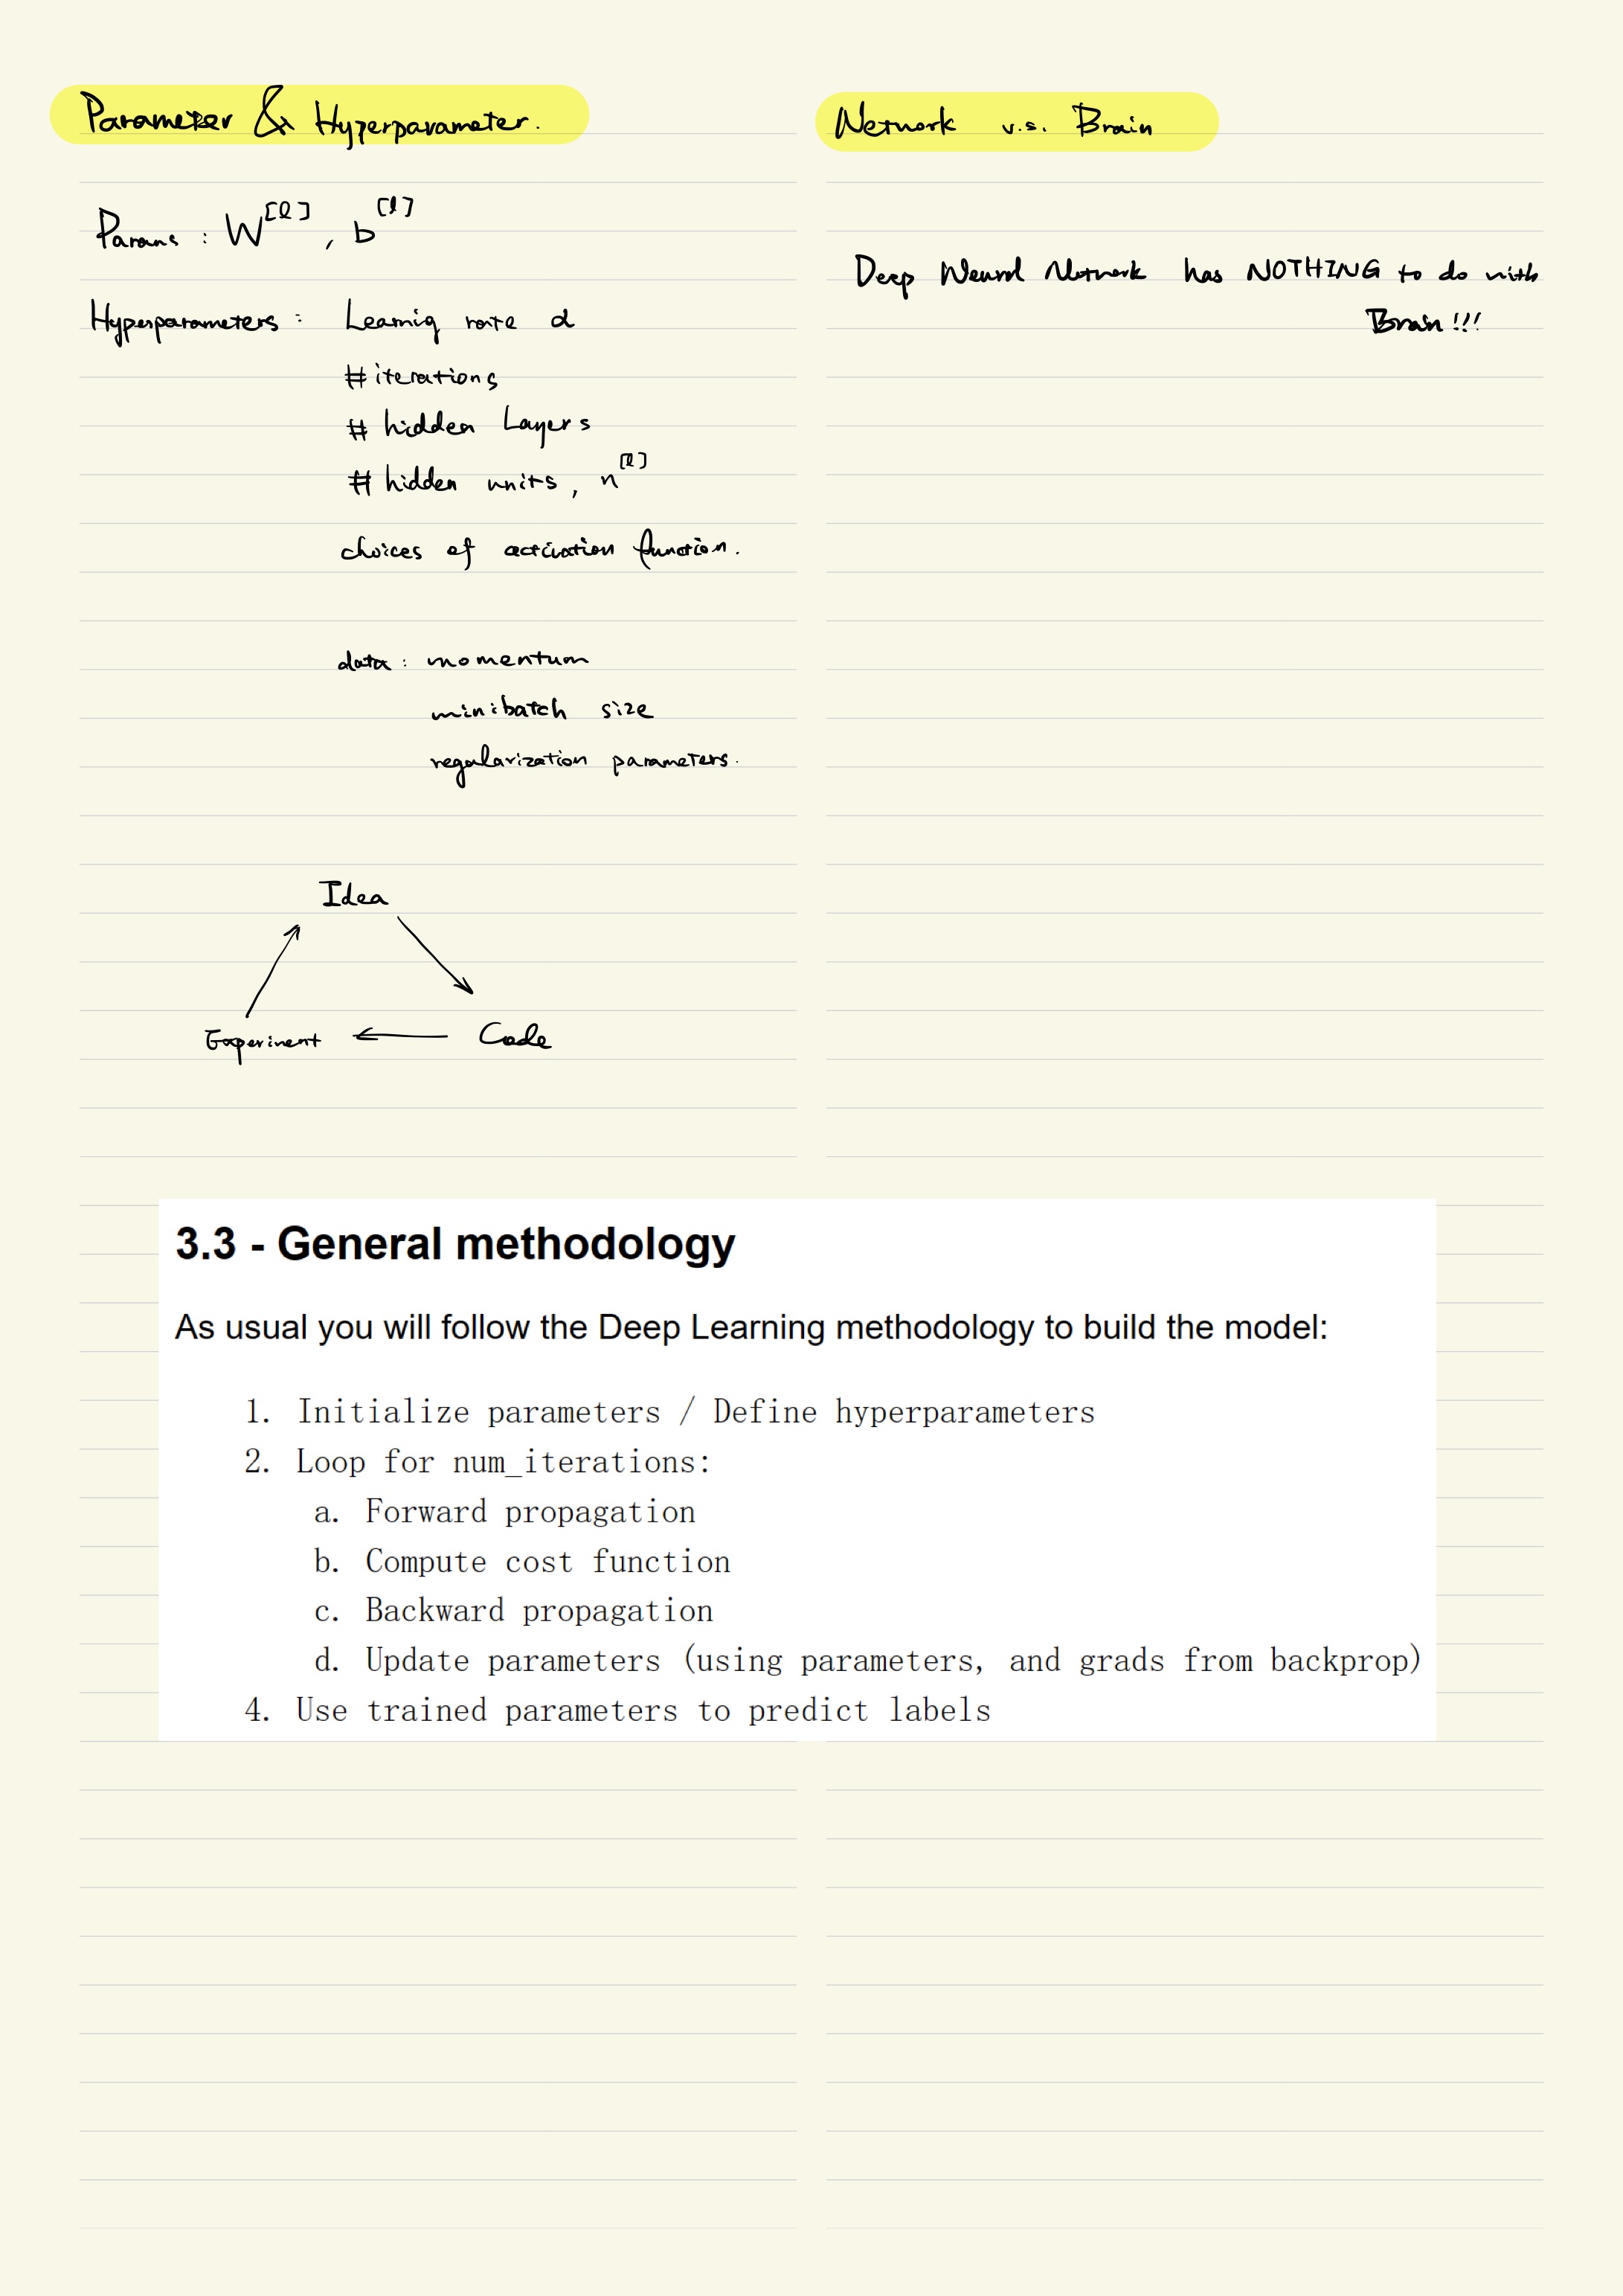 Parameter & Hyperparameter.
Params : W[l] , b[l]
Hyperparameters : Learnig rate α
# iterations
# hidden Layers
# hidden units , n[l]
choices of activation function.
data : momentum
minibatch size
regularization parameters.
Idea
Experiment
Code
Network v.s. Brain
Deep Neural Network has NOTHING to do with
Brain !!!
3.3 - General methodology
As usual you will follow the Deep Learning methodology to build the model:
1. Initialize parameters / Define hyperparameters
2. Loop for num_iterations:
a. Forward propagation
b. Compute cost function
c. Backward propagation
d. Update parameters (using parameters, and grads from backprop)
4. Use trained parameters to predict labels